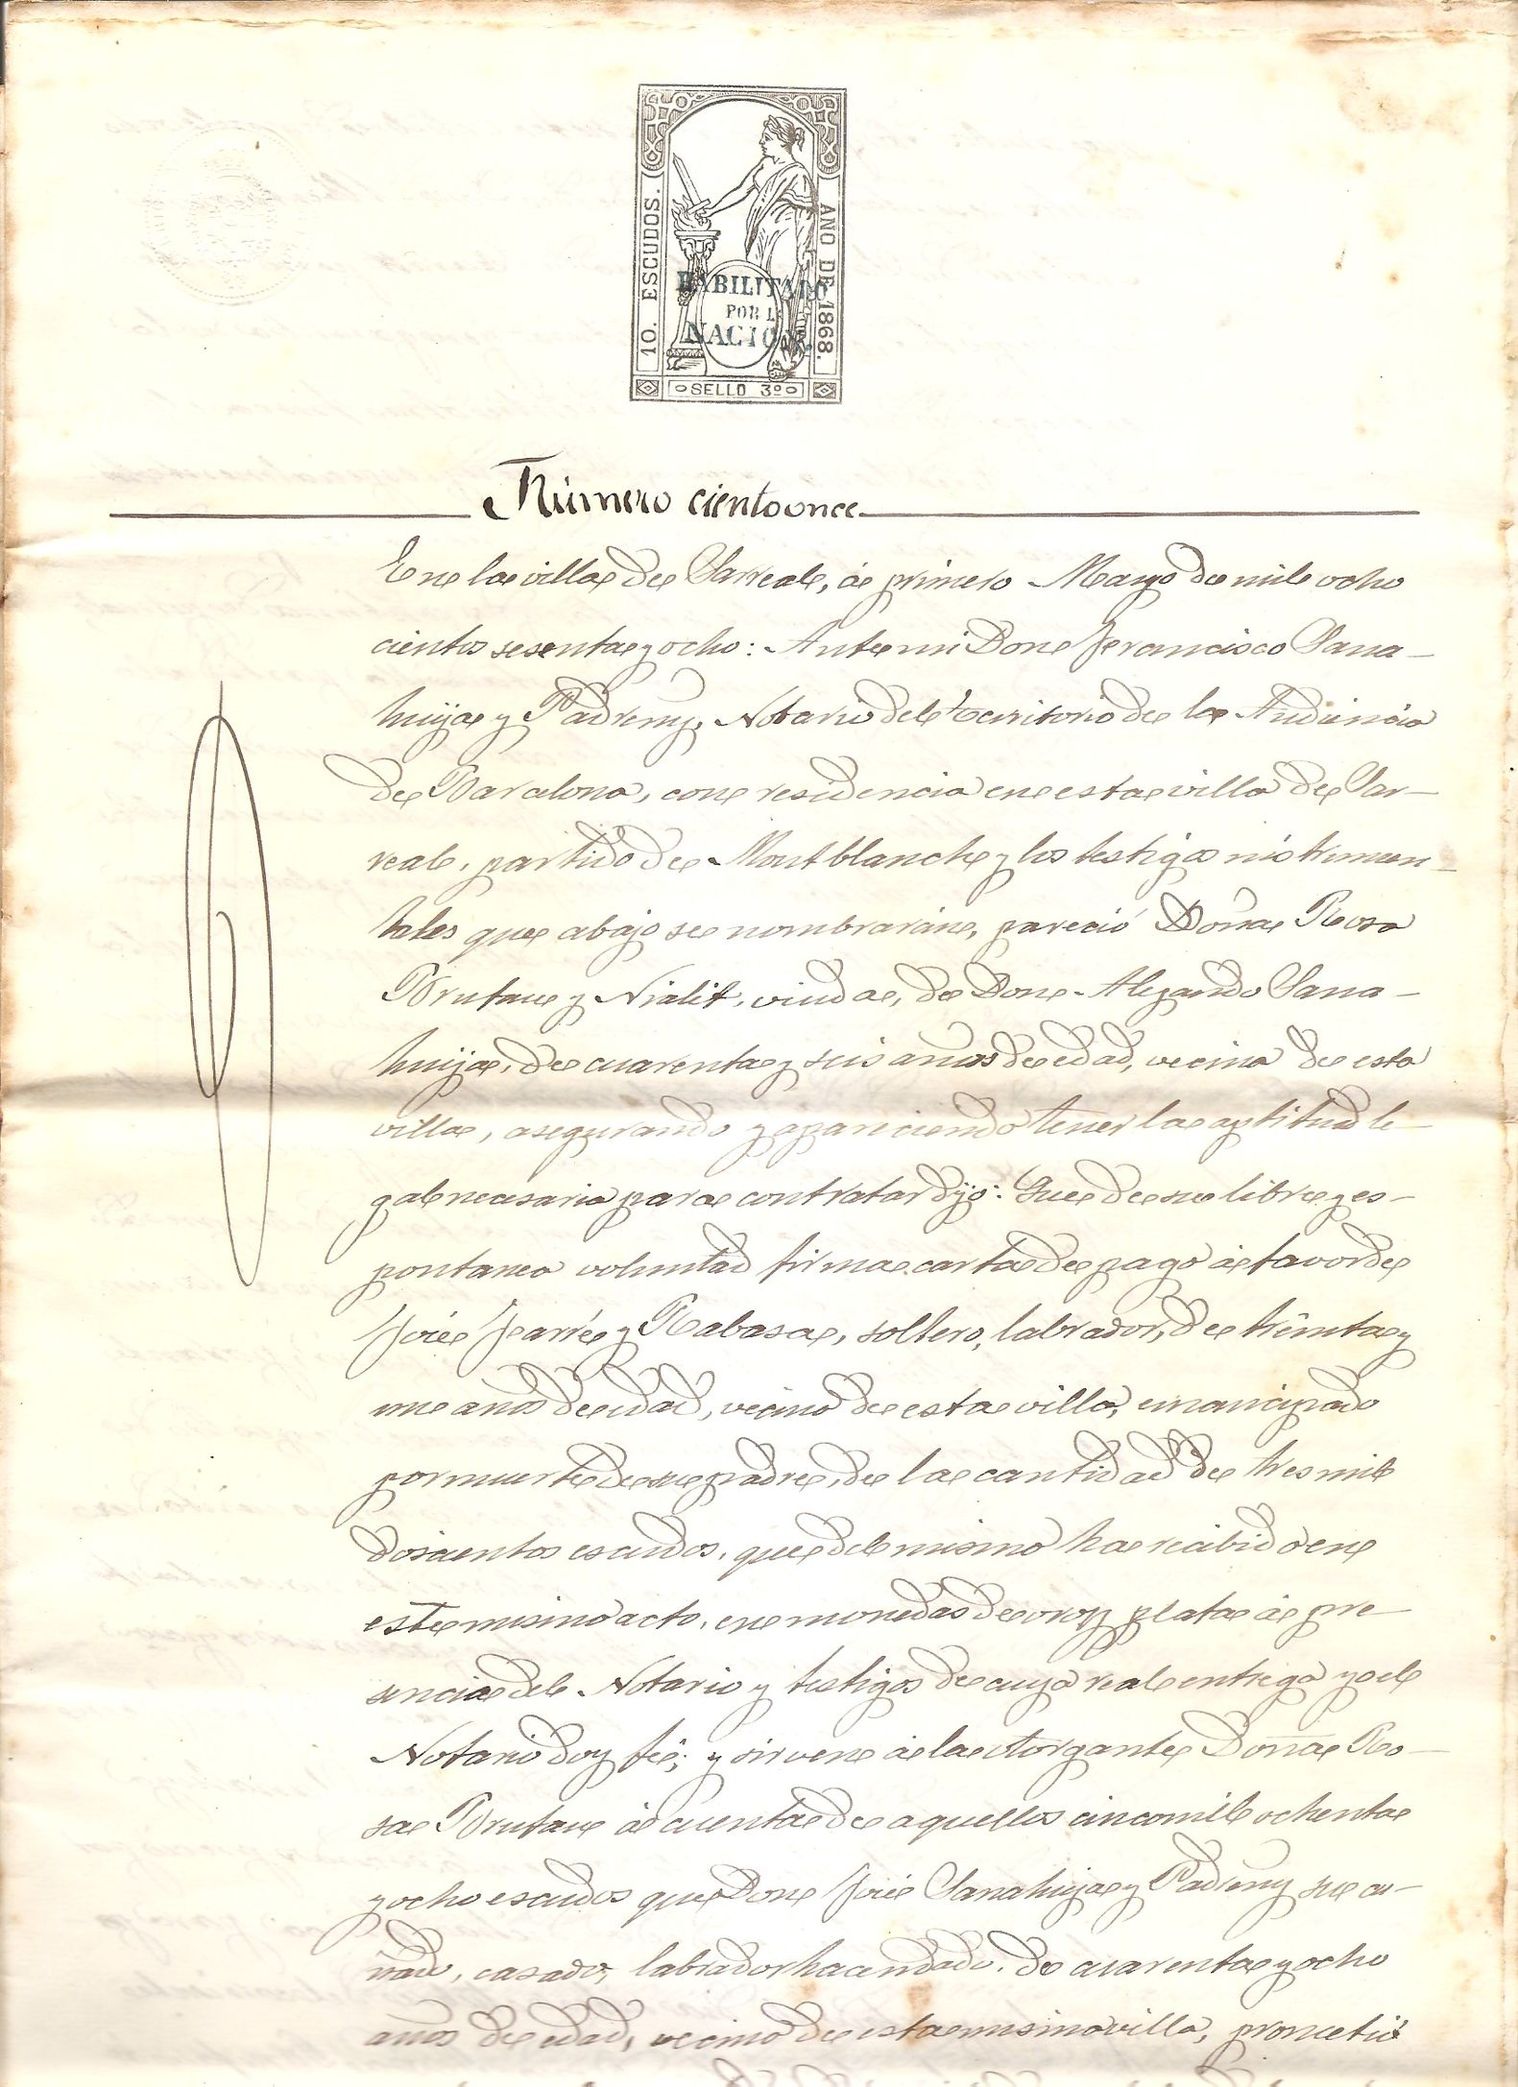 10. ESCUDOS.
AÑO DE 1868.
HABILITADO
POR L
NACION
SELLO 3º
Número ciento once
En la villa de Sarreal, á primero Mayo de mil ocho
cientos sesenta y ocho: Ante mi Don Francisco Sana-
huja y Padreny, Notario del territorio de la Audiencia
de Barcelona, con residencia en esta villa de Sar-
real, partido de Montblanch y los testigos instrumen-
tales que abajo se nombrarán, pareció Doña Rosa
Brutau y Nialit, viuda, de Don Alejandro Sana-
huija, de cuarenta y seis años de edad, vecina de esta
villa, asegurando y apareciendo tener la aptitud le-
gal necesaria para contratar dijo: Que de su libre y es-
pontanea voluntad firma carta de pago á favor de
José Farré y Rabasa, soltero, labrador, de treinta y
un años de edad, vecino de esta villa, emancipado
por muerte de su padre, de la cantidad de tres mil
doscientos escudos, que del mismo ha recibido en
este mismo acto, en monedas de oro y plata á pre-
sencia del Notario y testigos de cuya real entrega yo el
Notario doy fé; y sirven á la otorgante Doña Ro-
sa Brutau á cuenta de aquellos cinco mil ochenta
y ocho escudos que Don José Sanahuja y Padreny su cu-
ñado, casado, labrador hacendado, de cuarenta y ocho
años de edad, vecino de esta misma villa, prometió